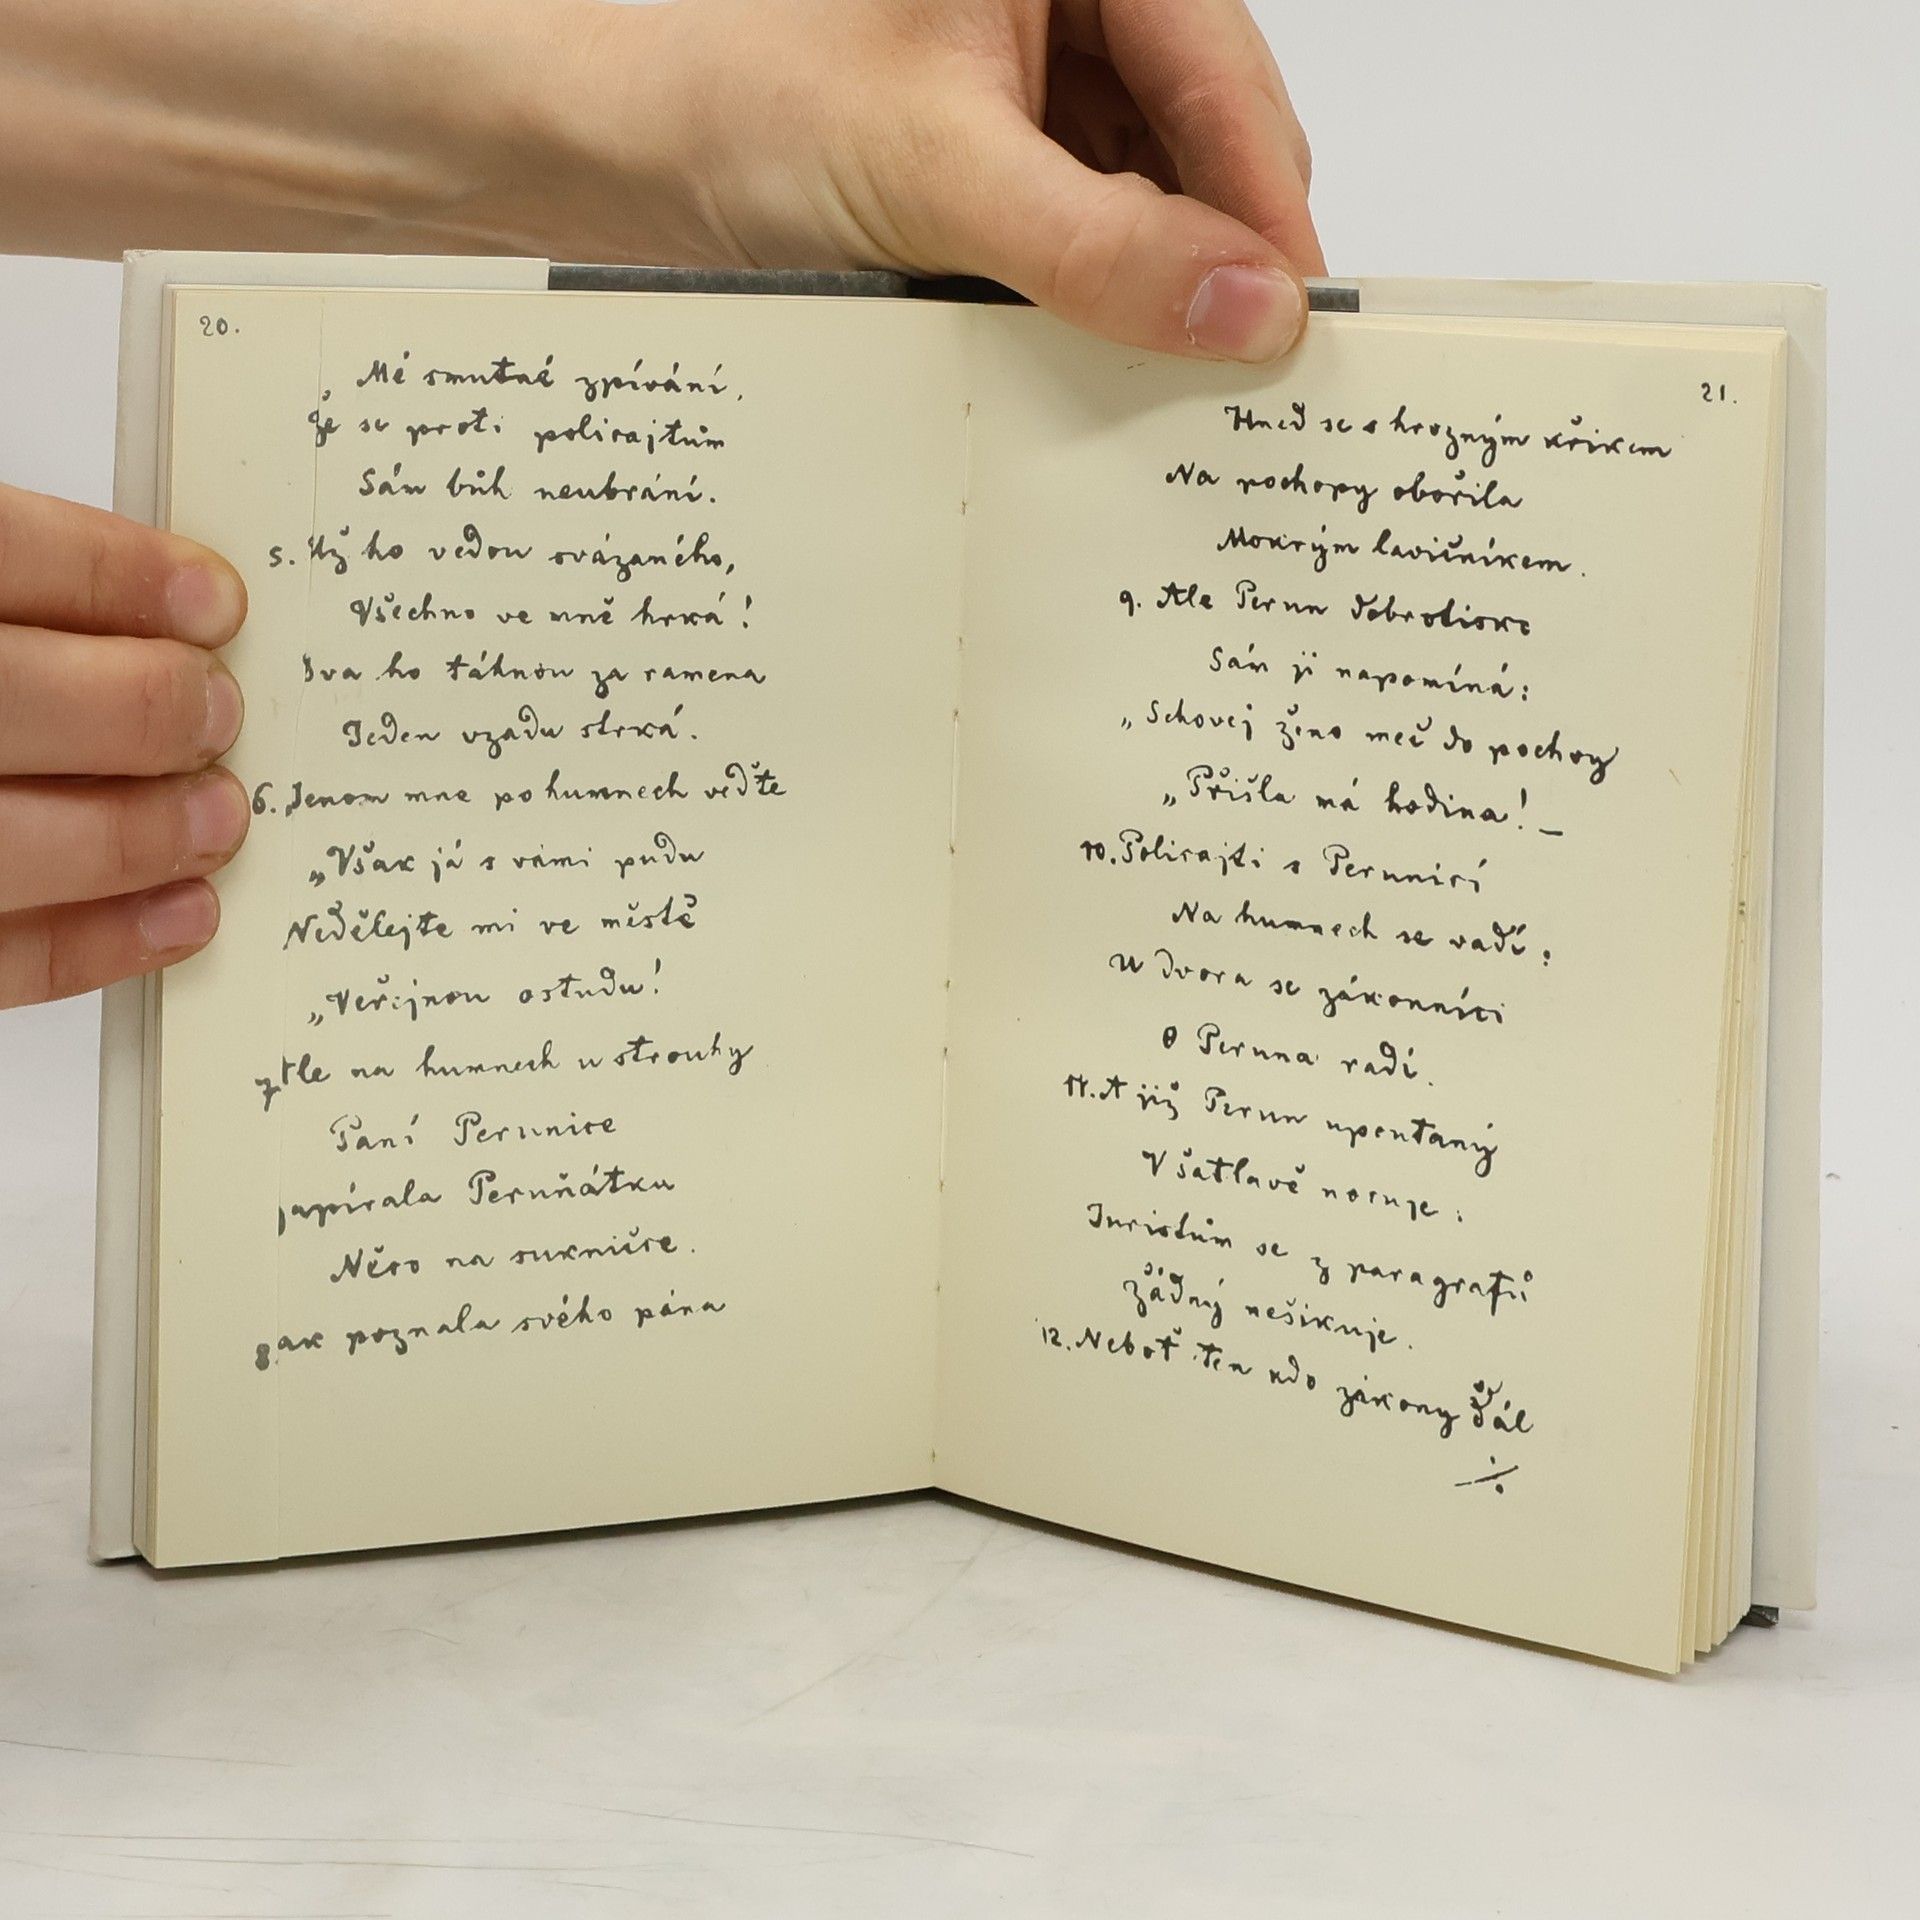 20.
Mé smutné zpívání,
Že se proti policajtům
Sám bůh neubrání.
5. Už ho vedou svázaného,
Všechno ve mně hrká!
Dva ho táhnou za ramena
Jeden vzadu strká.
6. Jenom mne po humnech veďte
„Však já s vámi pudu
Nedělejte mi ve městě
„Veřejnou ostudu!
7. Ale na humnech u strouhy
Paní Perunice
zapírala Peruňátku
Něco na sukničce.
8. ak poznala svého pána
21.
Hned se s hrozným křikem
Na pochopy obořila
Mokrým lavičníkem.
9. Ale Perun dobrotisko
Sám ji napomíná:
„Schovej ženo meč do pochvy
„Přišla má hodina! –
10. Policajti s Perunicí
Na humnech se vadí:
U dvora se zákonníci
O Peruna radí.
11. A již Perun upoutaný
V šatlavě nocuje:
Juristům se z paragrafů
Žádný nešikuje.
12. Neboť ten kdo zákony dál